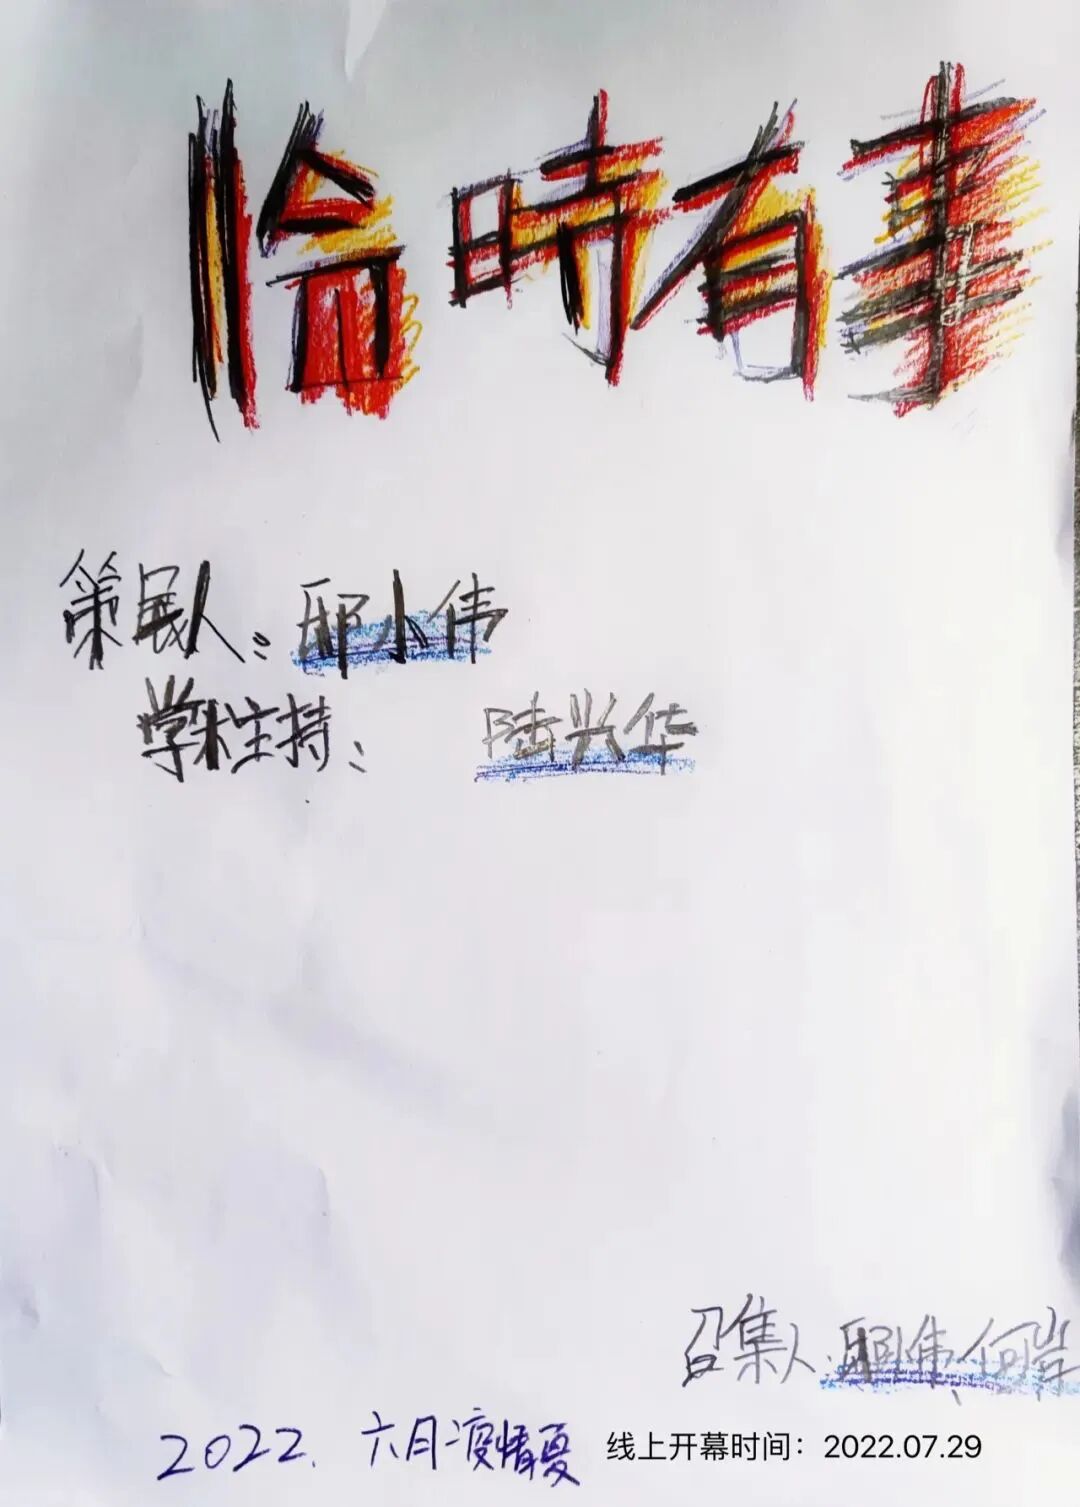 恰時有事
策展人：邸小伟
学术主持：陆兴华
召集人：邸小伟、何岩
2022. 六月疫情夏
线上开幕时间：2022.07.29